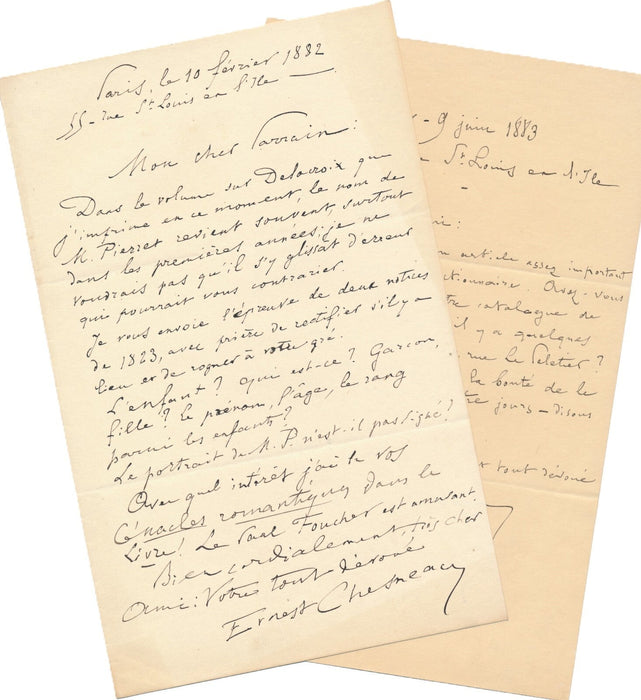 Paris, le 10 février 1882
55 - rue St Louis en l'Ile
Mon cher Parrain :
Dans le volume sur Delacroix que
j'imprime en ce moment, le nom de
M. Pierret revient souvent, surtout
dans les premières années; je ne
voudrais pas qu'il s'y glissât d'erreur
qui pourrait vous contrarier.
Je vous envoie l'épreuve de deux notices
de 1823, avec prière de rectifier s'il y a
lieu et de rogner à votre gré.
L'enfant? qui est-ce? Garçon,
fille? le prénom, l'âge, le rang
parmi les enfants?
Le portrait de M. P. n'est-il pas signé?
Avec quel intérêt j'ai lu vos
Cénacles romantiques dans le
Livre! Le Paul Foucher est amusant.
Bien cordialement, très cher
ami: Votre tout dévoué
Ernest Chesneau
- 9 juin 1883
St Louis en l'Ile
article assez important
Avez-vous
catalogue de
il y a quelques
rue Le Peletier?
la bonté de le
jours - disons
tout dévoué